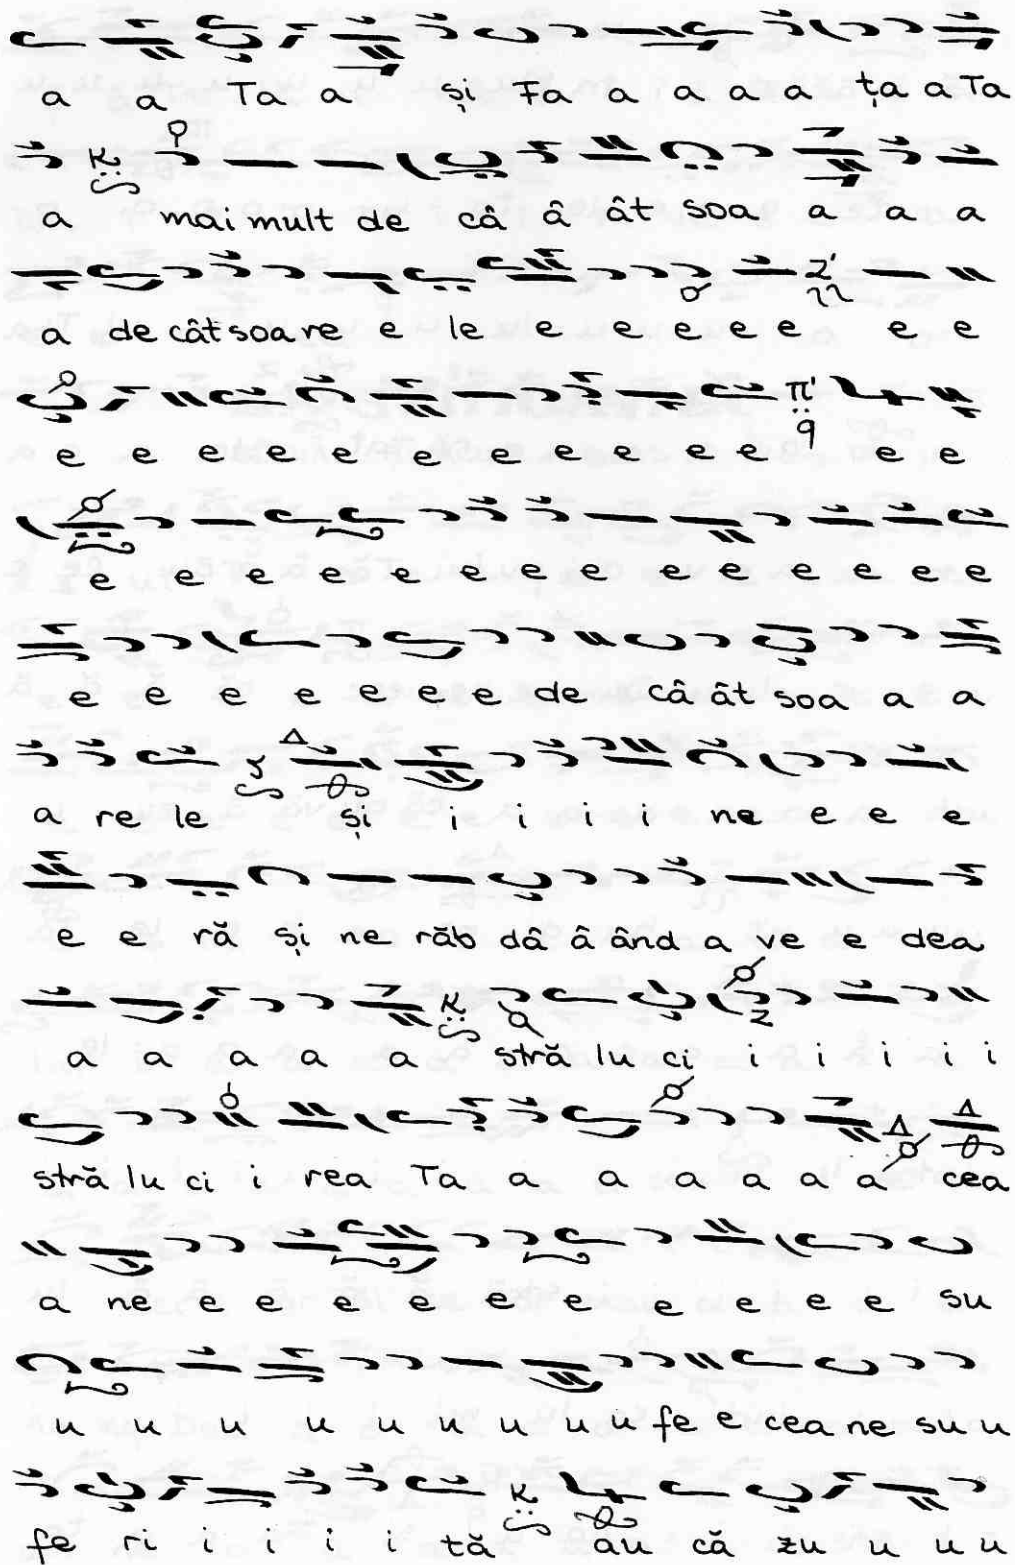 a a Ta a și Fa a a a a ța a Ta
a mai mult de câ â ât soa a a a
a de cât soa re e le e e e e e e e
e e e e e e e e e e e e
e e e e e e e e e e e e e
e e e e e e e de câ ât soa a a
a re le și i i i i ne e e e
e e ră și ne răb dâ â ând a ve e dea
a a a a a stră lu ci i i i i i
stră lu ci i rea Ta a a a a a a cea
a ne e e e e e e e e e e su
u u u u u u u u u fe e cea ne su u
fe ri i i i i tă au că zu u u u